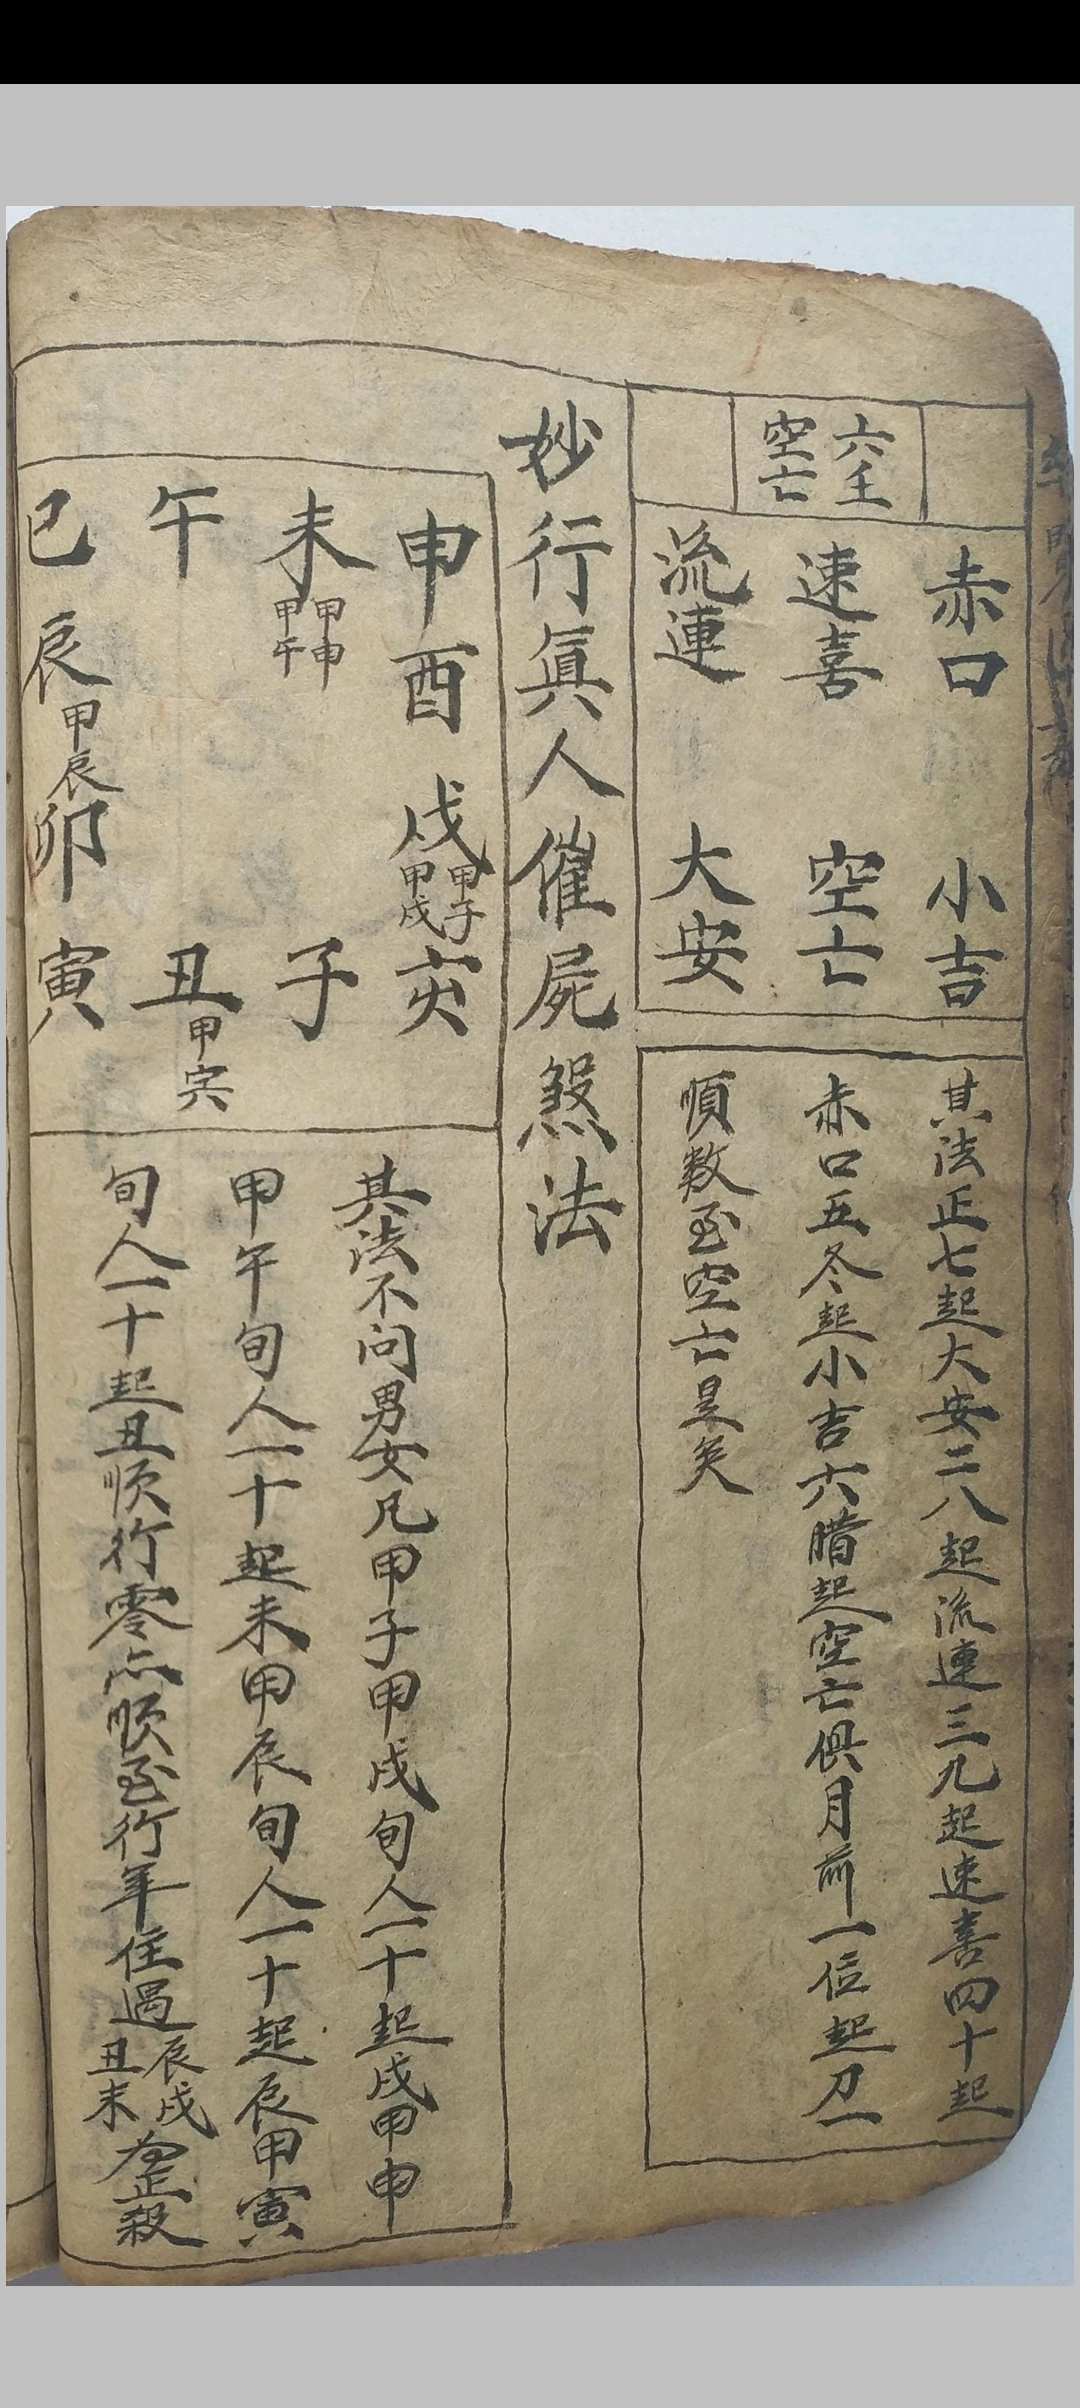 六壬
空亡
赤口　小吉
速喜　空亡
流連　大安
其法正七起大安二八起流連三九起速喜四十起
赤口五冬起小吉六腊起空亡俱月前一位起刀一
順数至空亡是矣
妙行真人催屍煞法
申酉戌甲子甲戌亥
未甲申甲午　子
午　丑甲寅
巳辰甲辰卯寅
其法不问男女凡甲子甲戌旬人一十起戌甲申
甲午旬人一十起未甲辰旬人一十起辰甲寅
旬人一十起丑顺行零点顺至行年住遇辰戌丑未為正殺